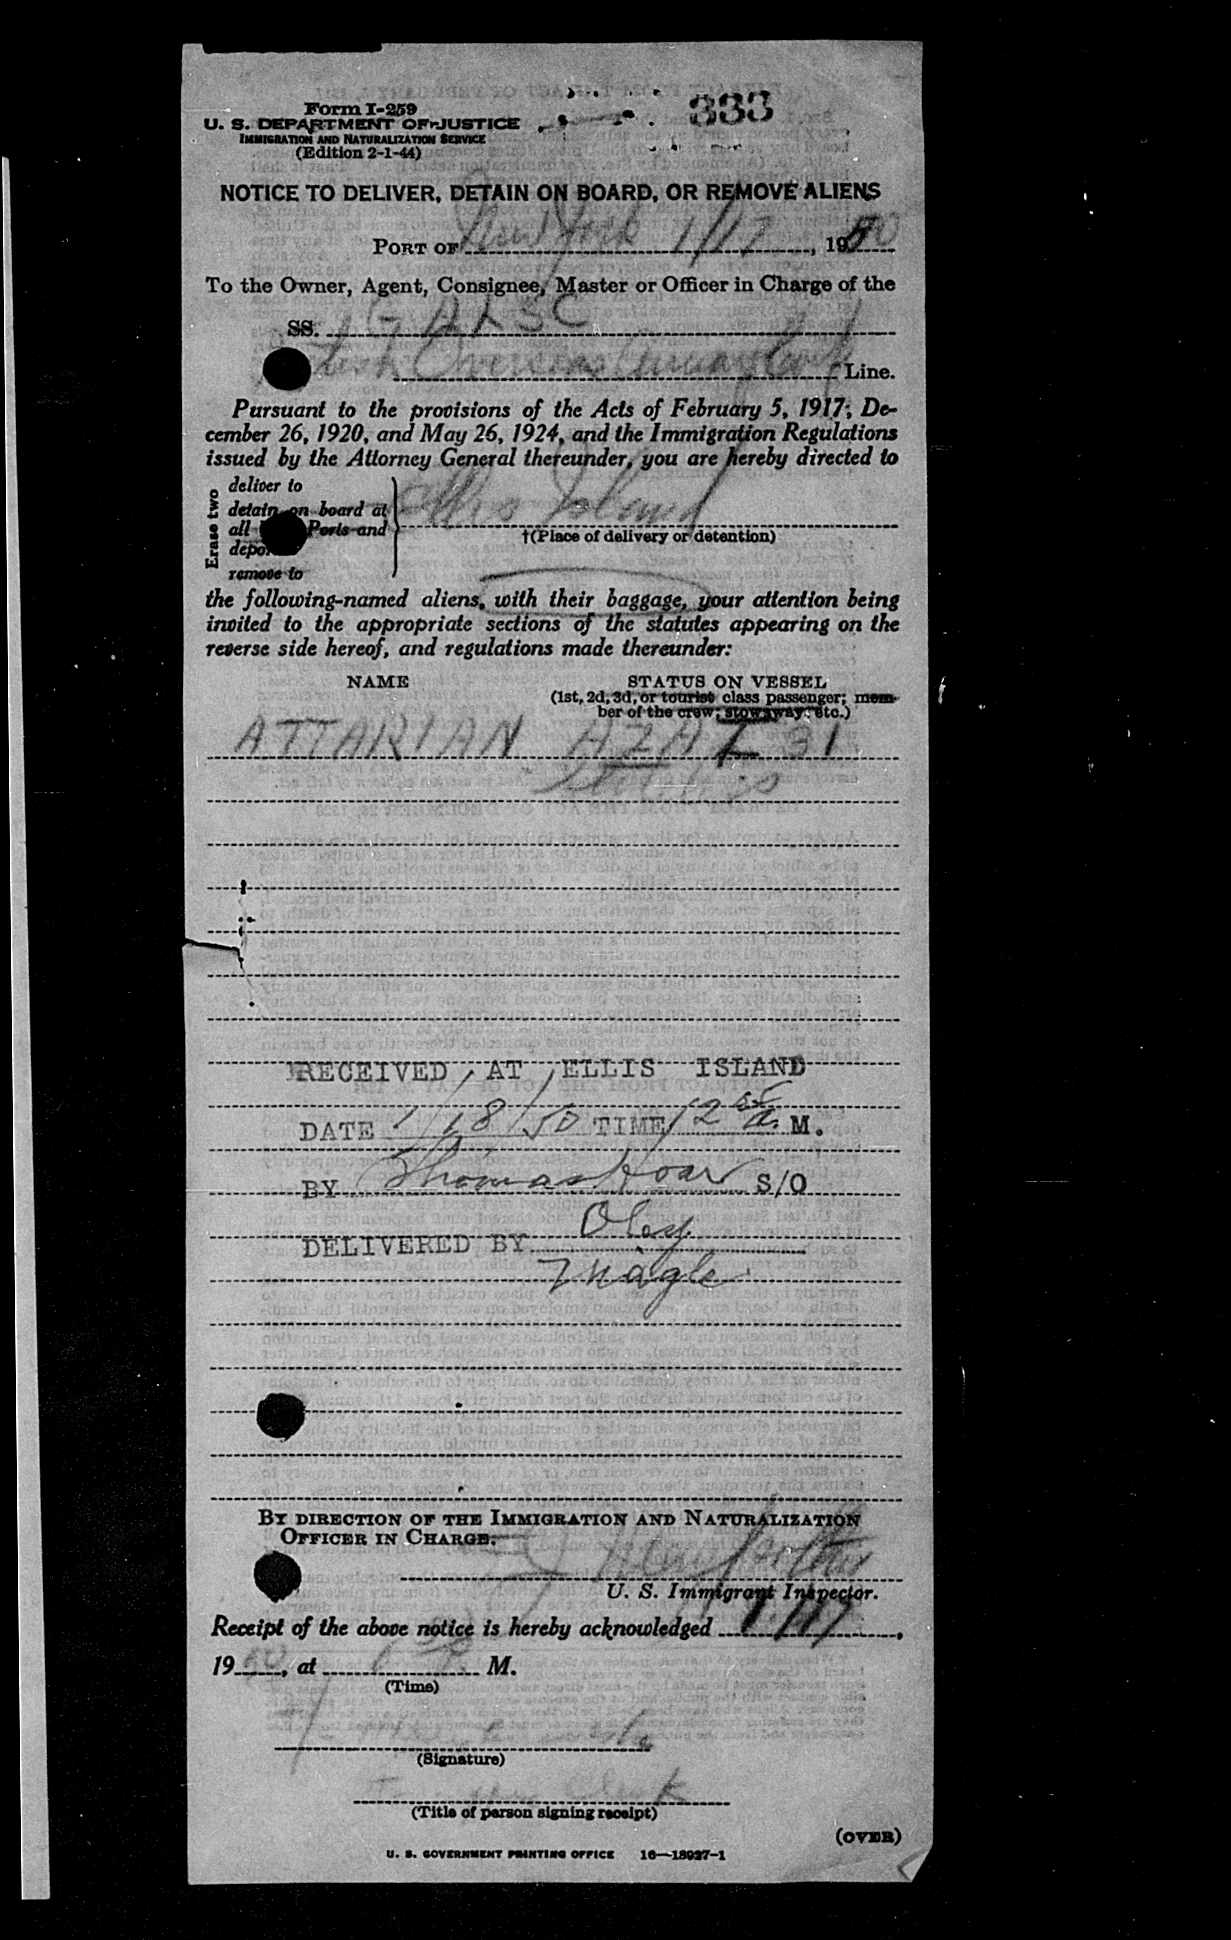 Form I-259
333
U. S. DEPARTMENT OF JUSTICE
IMMIGRATION AND NATURALIZATION SERVICE
(Edition 2-1-44)
NOTICE TO DELIVER, DETAIN ON BOARD, OR REMOVE ALIENS
PORT OF New York 1/17, 1950
To the Owner, Agent, Consignee, Master or Officer in Charge of the
SS. GALSC
British Overseas Airways Corp Line.
Pursuant to the provisions of the Acts of February 5, 1917; De-
cember 26, 1920, and May 26, 1924, and the Immigration Regulations
issued by the Attorney General thereunder, you are hereby directed to
Erase two
deliver to
detain on board at
all Ports and
remove to
Ellis Island
†(Place of delivery or detention)
the following-named aliens, with their baggage, your attention being
invited to the appropriate sections of the statutes appearing on the
reverse side hereof, and regulations made thereunder:
NAME STATUS ON VESSEL
(1st, 2d, 3d, or tourist class passenger; mem-
ber of the crew; stowaway; etc.)
ATTARIAN AZAT 31
RECEIVED AT ELLIS ISLAND
DATE 1/18/50 TIME 12 A. M.
BY Thomas Hoar S/O
DELIVERED BY Oley
Nagle
BY DIRECTION OF THE IMMIGRATION AND NATURALIZATION
OFFICER IN CHARGE:
U. S. Immigrant Inspector.
Receipt of the above notice is hereby acknowledged 1/17,
1950, at M.
(Time)
(Signature)
Clerk
(Title of person signing receipt)
(OVER)
U. S. GOVERNMENT PRINTING OFFICE 16—18927-1